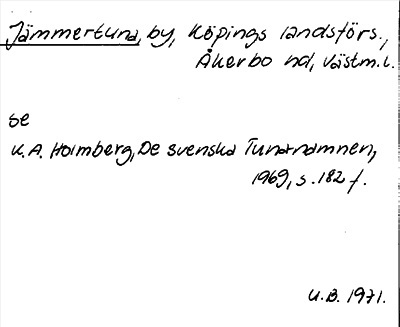 Jämmertuna, by, Köpings landsförs.,
Åkerbo hd, Västm.l.
se
K.A. Holmberg, De svenska Tuna-namnen,
1969, s. 182 f.
U.B. 1971.